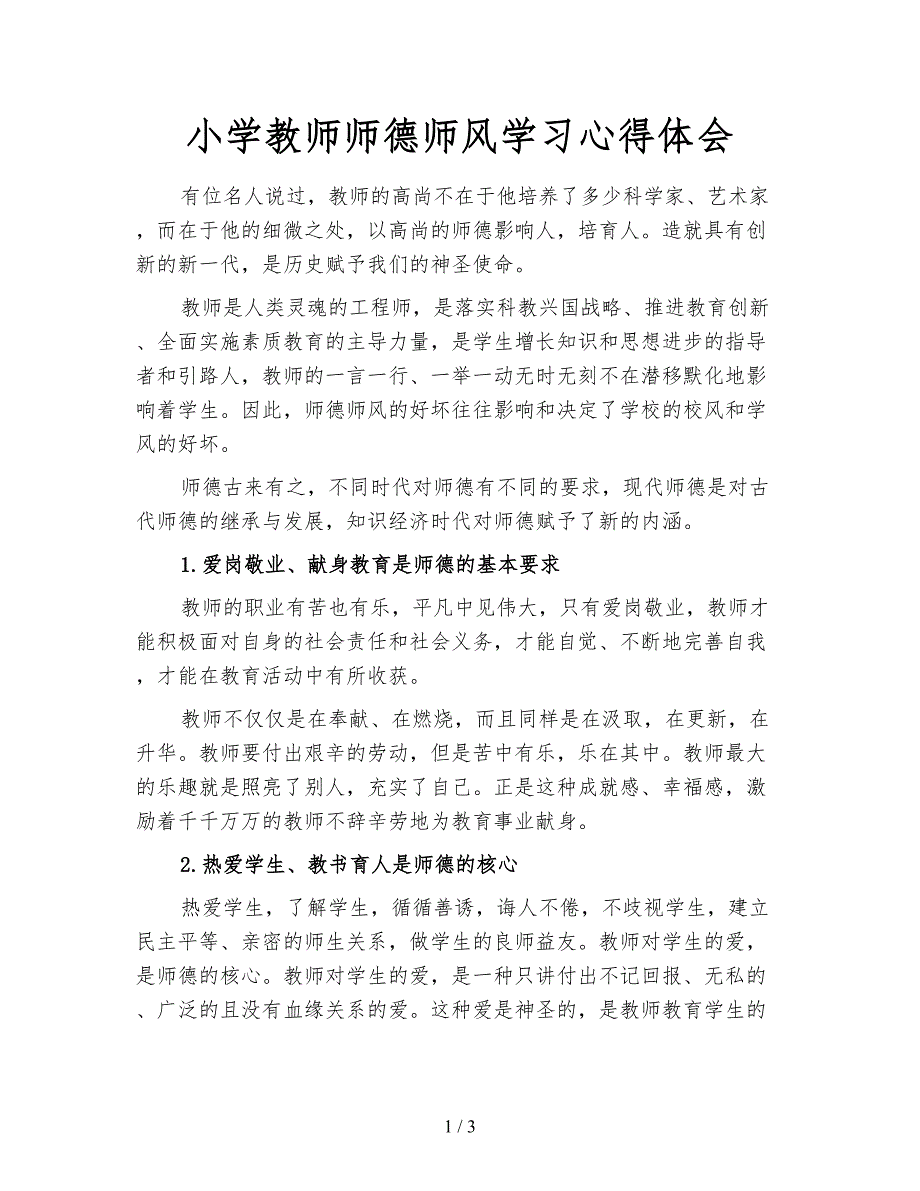 小学教师师德师风学习心得体会
有位名人说过，教师的高尚不在于他培养了多少科学家、艺术家
，而在于他的细微之处，以高尚的师德影响人，培育人。造就具有创
新的新一代，是历史赋予我们的神圣使命。
教师是人类灵魂的工程师，是落实科教兴国战略、推进教育创新
、全面实施素质教育的主导力量，是学生增长知识和思想进步的指导
者和引路人，教师的一言一行、一举一动无时无刻不在潜移默化地影
响着学生。因此，师德师风的好坏往往影响和决定了学校的校风和学
风的好坏。
师德古来有之，不同时代对师德有不同的要求，现代师德是对古
代师德的继承与发展，知识经济时代对师德赋予了新的内涵。
1.爱岗敬业、献身教育是师德的基本要求
教师的职业有苦也有乐，平凡中见伟大，只有爱岗敬业，教师才
能积极面对自身的社会责任和社会义务，才能自觉、不断地完善自我
，才能在教育活动中有所收获。
教师不仅仅是在奉献、在燃烧，而且同样是在汲取，在更新，在
升华。教师要付出艰辛的劳动，但是苦中有乐，乐在其中。教师最大
的乐趣就是照亮了别人，充实了自己。正是这种成就感、幸福感，激
励着千千万万的教师不辞辛劳地为教育事业献身。
2.热爱学生、教书育人是师德的核心
热爱学生，了解学生，循循善诱，诲人不倦，不歧视学生，建立
民主平等、亲密的师生关系，做学生的良师益友。教师对学生的爱，
是师德的核心。教师对学生的爱，是一种只讲付出不记回报、无私的
、广泛的且没有血缘关系的爱。这种爱是神圣的，是教师教育学生的
1 / 3